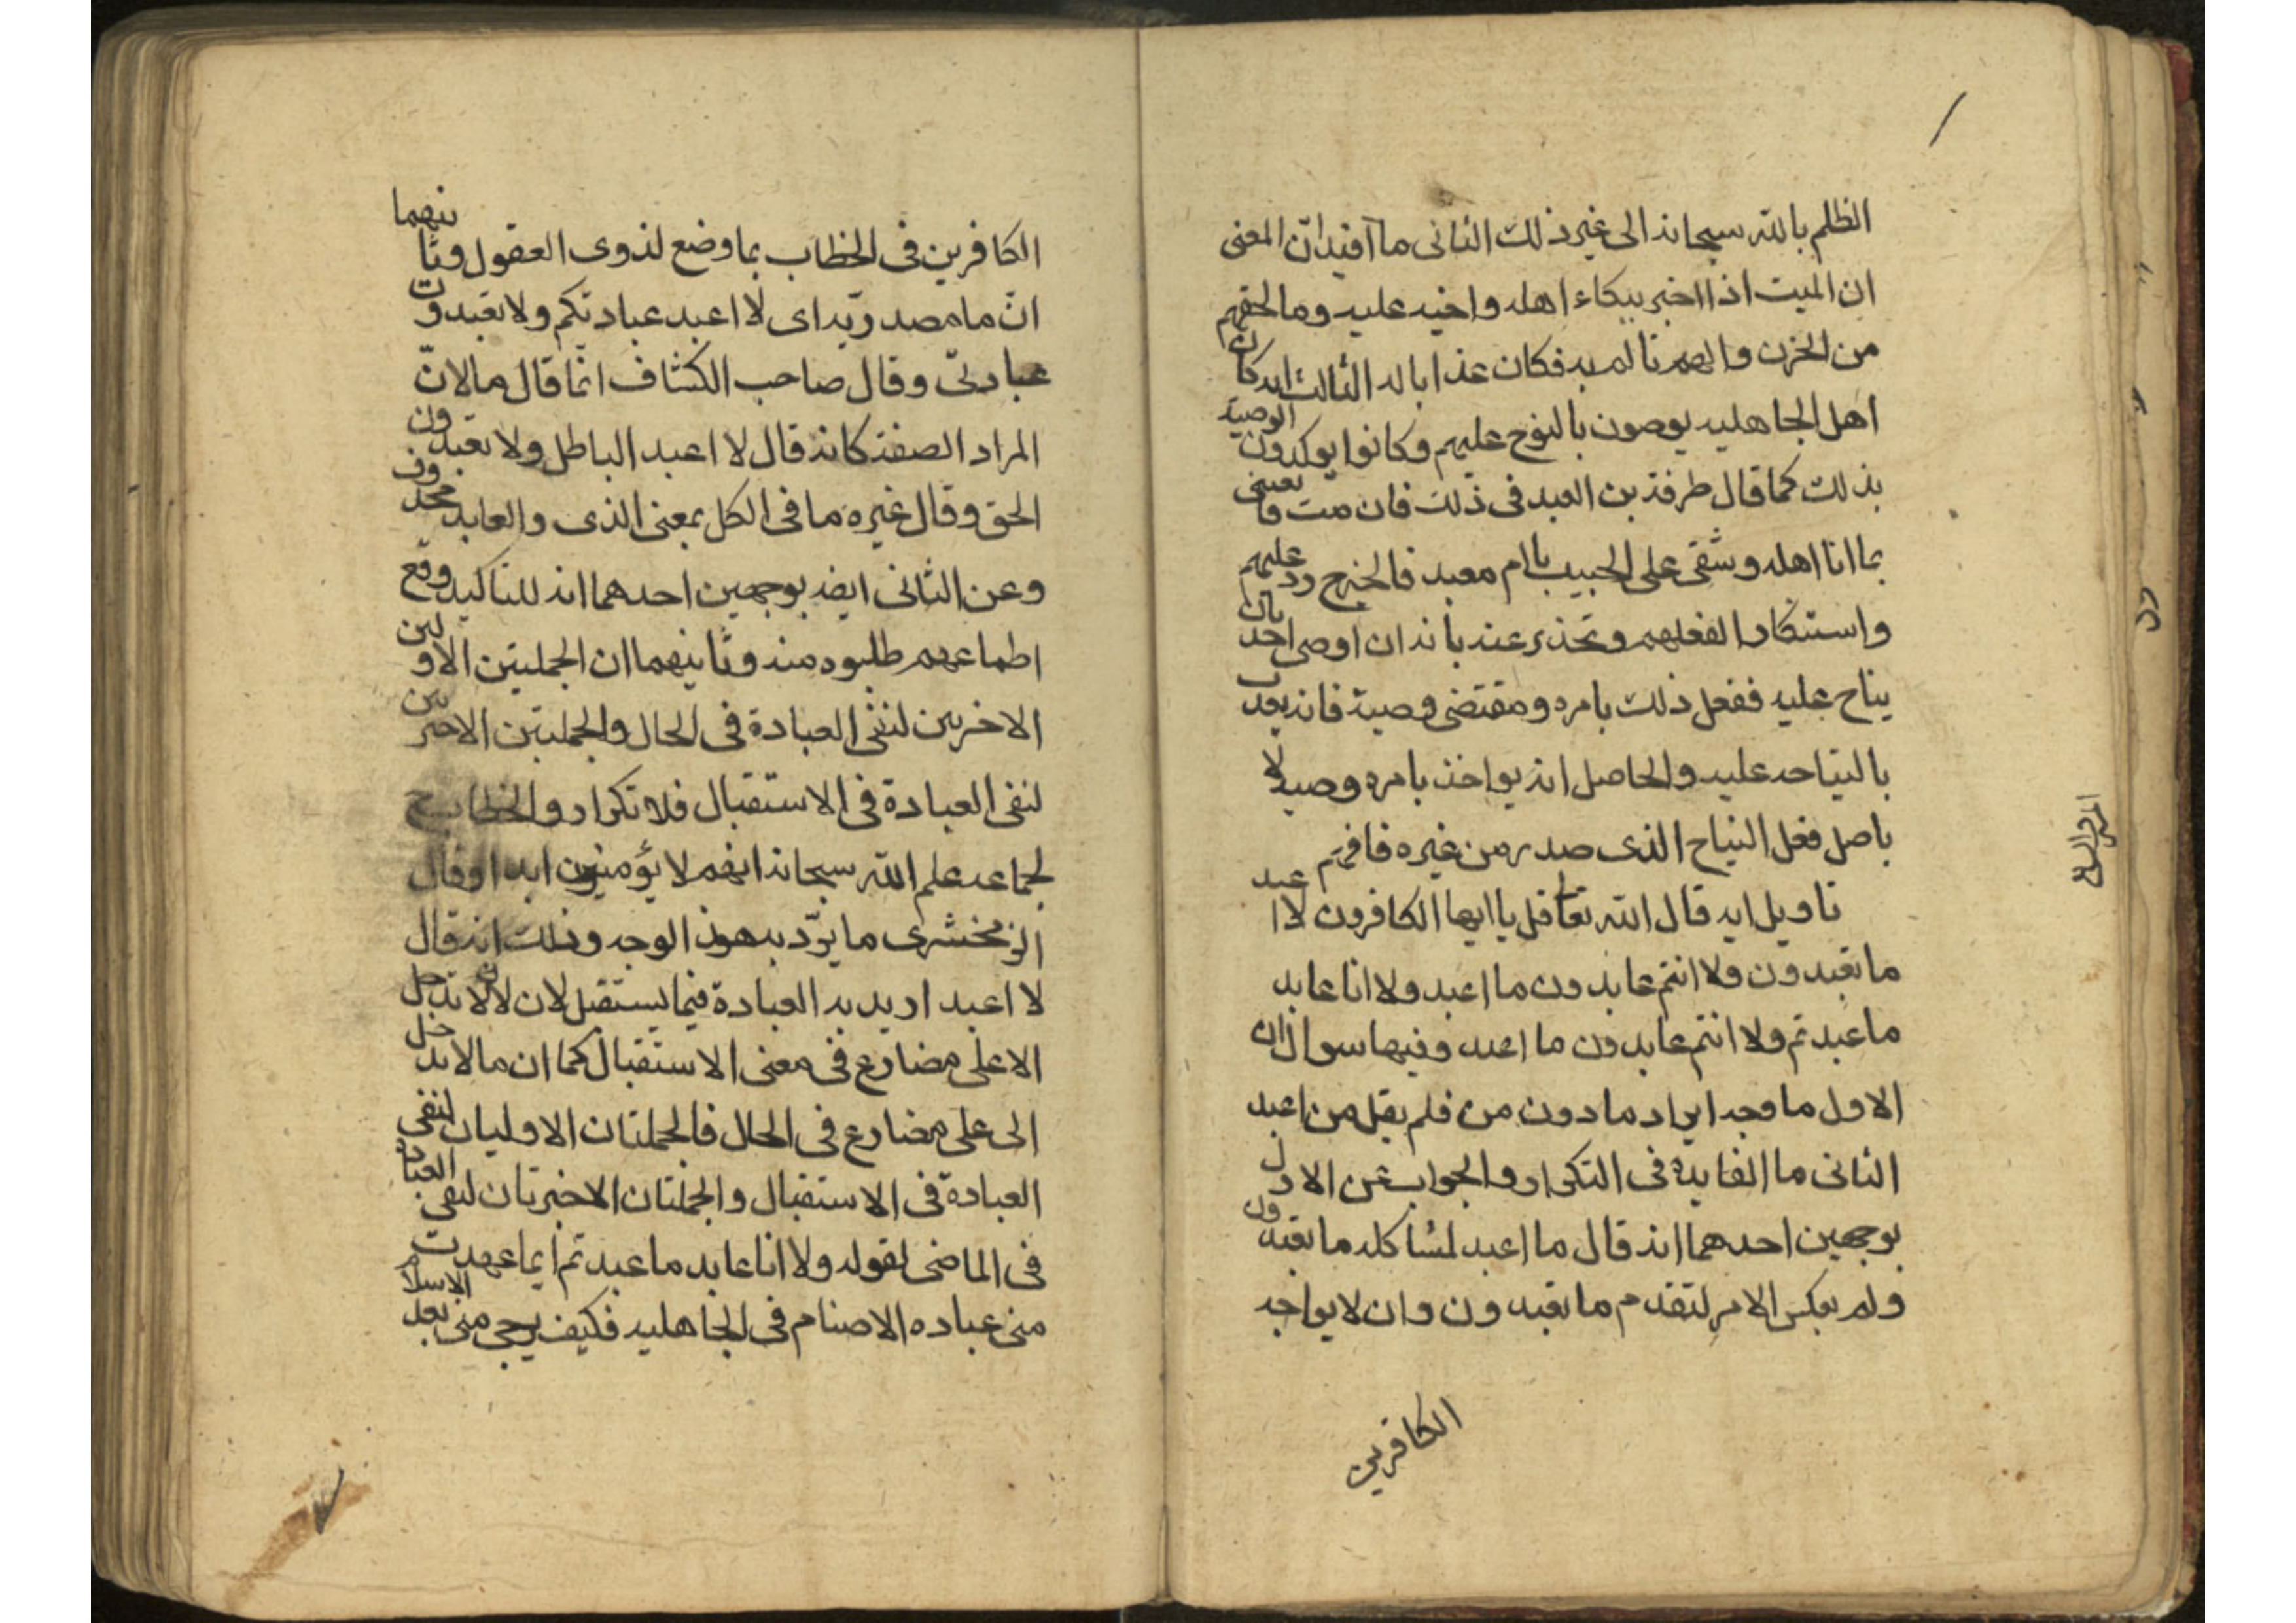 الظلم بالله سبحانه الى غير ذلك الثانى ما آفيد انّ المعنى
ان الميت اذا اخبر ببكاء اهله واخيه عليه وما لحقهم
من الحزن والهم تالم به فكان عذابا له الثالث انه كان
اهل الجاهليه يوصون بالنوح عليهم وكانوا يوكدون الوصية
بذلك كما قال طرفة بن العبد فى ذلك فان مت فانعينى
بما انا اهله وشقى على الجيب يا ام معبد فالخبر رد عليهم
واستنكار لفعلهم وتحذير عنه بانه ان اوصى احد بان
يناح عليه ففعل ذلك بامره ومقتضى وصية فانه يعذب
بالنياحه عليه والحاصل انه يواخذ بامره وصيه لا
باصل فعل النياح الذى صدر من غيره فافهم
تاويل ايه قال الله تعا قل يا ايها الكافرون لا اعبد
ما تعبدون ولا انتم عابدون ما اعبد ولا انا عابد
ما عبدتم ولا انتم عابدون ما اعبد وفيها سوالان
الاول ما وجه ايراد ما دون من فلم يقل من اعبد
الثانى ما الفايدة فى التكرار والجواب عن الاول
بوجهين احدهما انه قال ما اعبد لمشاكله ما تعبدون
ولم يعكس الامر لتقدم ما تعبدون وان لا يواجه
الكافرين
الكافرين فى الخطاب بما وضع لذوى العقول وثانيهما
انّ ما مصدريّه اى لا اعبد عبادتكم ولا تعبدون
عبادتى وقال صاحب الكشاف انّما قال ما لانّ
المراد الصفة كانه قال لا اعبد الباطل ولا تعبدون
الحق وقال غيره ما فى الكل بمعنى الذى والعابد محذوف
وعن الثانى ايضه بوجهين احدهما انه للتاكيد وقع
اطماعهم طلبوه منه وثانيهما ان الجملتين الاولين
الاخرين لنفى العبادة فى الحال والجملتين الاخيرين
لنفى العبادة فى الاستقبال فلا تكرار والخطاب ح
لجماعه علم الله سبحانه انهم لا يؤمنون ابدا وقال
الزمخشرى ما يردّ به هذا الوجه وذلك انه قال
لا اعبد اريد به العبادة فيما يستقبل لان لا لا تدخل
الا على مضارع فى معنى الاستقبال كما ان ما لا تدخل
الى على مضارع فى الحال فالجملتان الاوليان لنفى
العبادة فى الاستقبال والجملتان الاخيرتان لنفى العبادة
فى الماضى لقوله ولا انا عابد ما عبدتم اى ما عهدت
منى عباده الاصنام فى الجاهليه فكيف يرجى منى بعد الاسلام